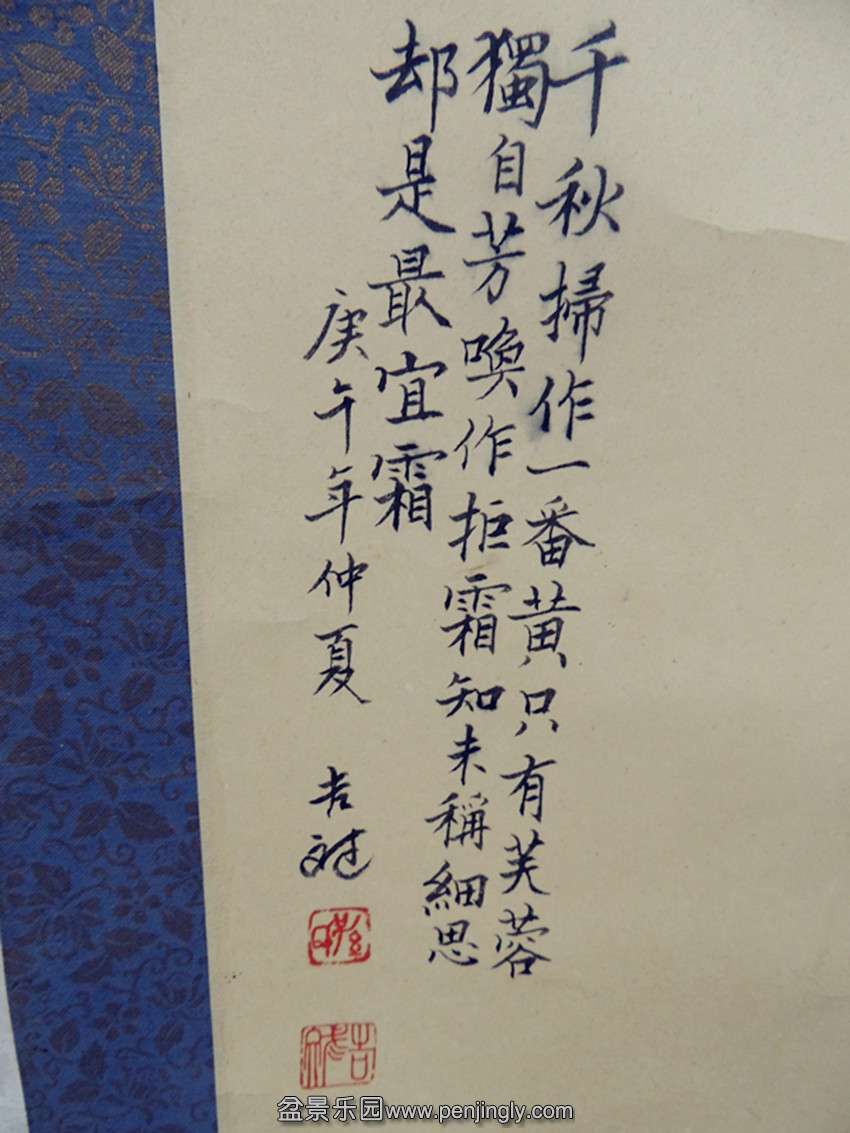 千秋掃作一番黄只有芙蓉
獨自芳喚作拒霜知未稱細思
却是最宜霜
庚午年仲夏 吉
盆景乐园www.penjingly.com